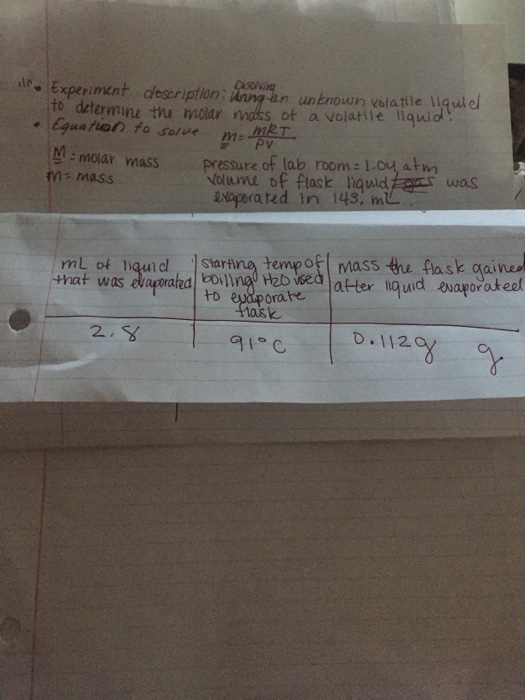 • Experiment description: Desolving an unknown volatile liquid
to determine the molar mass of a volatile liquid.
• Equation to solve M = mRT / PV
M = molar mass
m = mass
pressure of lab room = 1.04 atm
volume of flask liquid was
evaporated in 143. mL
mL of liquid that was evaporated
starting temp of boiling H2O used to evaporate flask
mass the flask gained after liquid evaporated
2.8
91°C
0.112g g